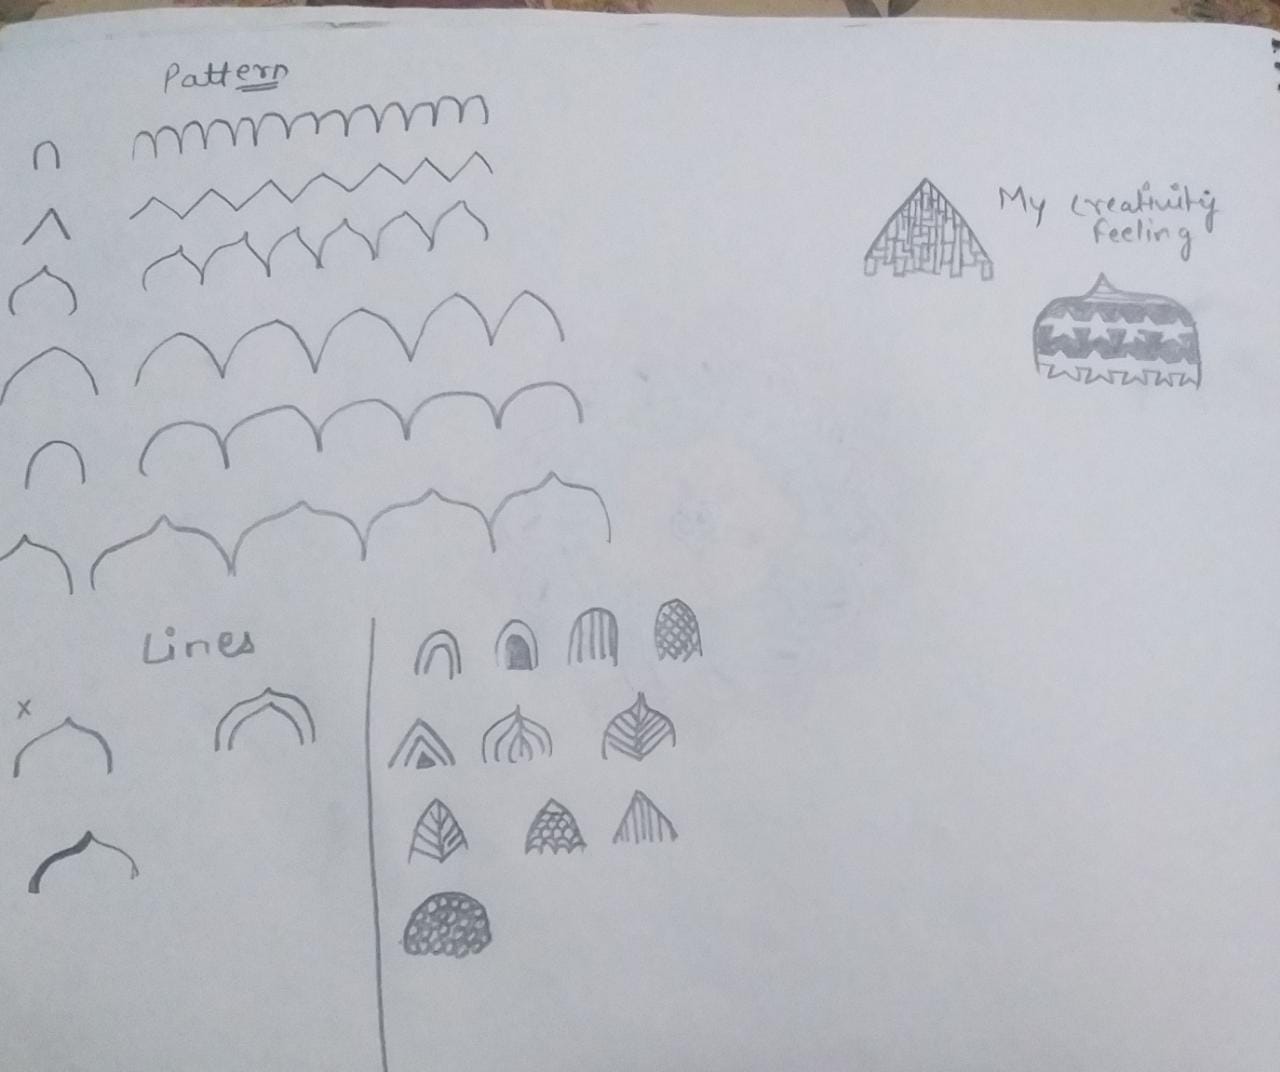 Pattern
My creativity
feeling
Lines
x